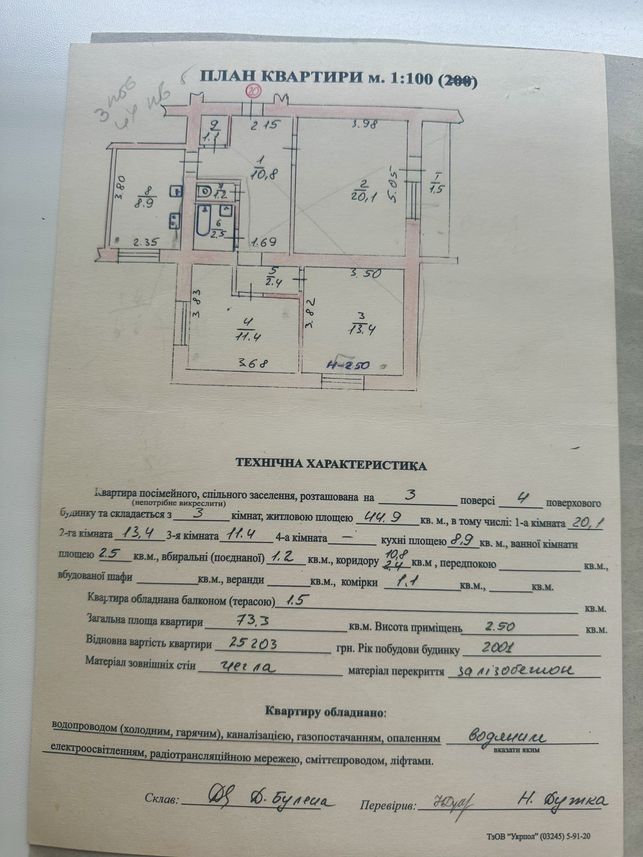 ПЛАН КВАРТИРИ м. 1:100 (200)
20
9
1.1
2.15
3.98
1
10,8
2
20,1
5.05
I
1.5
3.80
8
8.9
7
1.2
6
2.5
2.35
1.69
5
2.4
3.50
3.83
4
11.4
3.82
3
13.4
3.68
H-2.50
ТЕХНІЧНА ХАРАКТЕРИСТИКА
Квартира посімейного, спільного заселення, розташована на 3 поверсі 4 поверхового
(непотрібне викреслити)
будинку та складається з 3 кімнат, житловою площею 44.9 кв. м., в тому числі: 1-а кімната 20,1
2-га кімната 13,4 3-я кімната 11.4 4-а кімната — кухні площею 8,9 кв. м., ванної кімнати
площею 2.5 кв.м., вбиральні (поєднаної) 1.2 кв.м., коридору 10,8 2,4 кв.м , передпокою кв.м.,
вбудованої шафи кв.м., веранди кв.м., комірки 1,1 кв.м., кв.м.
Квартира обладнана балконом (терасою) 1.5 кв.м.
Загальна площа квартири 73,3 кв.м. Висота приміщень 2.50 кв.м.
Відновна вартість квартири 25203 грн. Рік побудови будинку 2001
Матеріал зовнішніх стін цегла матеріал перекриття залізобетон
Квартиру обладнано:
водопроводом (холодним, гарячим), каналізацією, газопостачанням, опаленням водяним
вказати яким
електроосвітленням, радіотрансляційною мережею, сміттєпроводом, ліфтами.
Склав: Д. Булена Перевірив: Н. Дужка
ТзОВ "Укрпол" (03245) 5-91-20